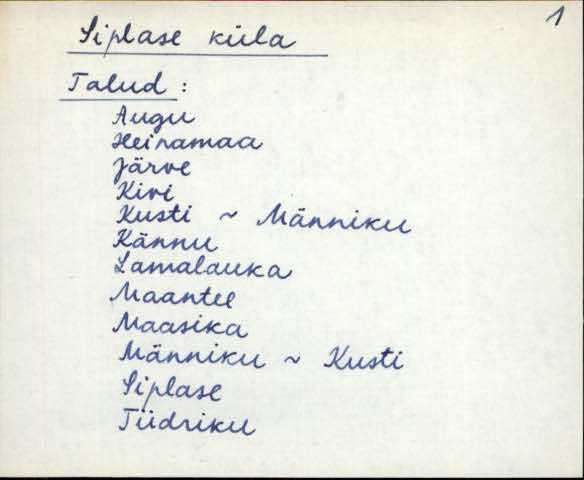 1
Siplase küla
Talud:
Augu
Heinamaa
Järve
Kivi
Kusti ~ Männiku
Kännu
Lamalauka
Maantee
Maasika
Männiku ~ Kusti
Siplase
Tüdriku